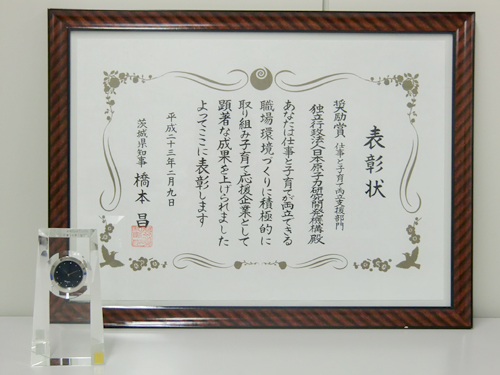 表彰状
奨励賞 仕事と子育て両立支援部門
独立行政法人日本原子力研究開発機構殿
あなたは仕事と子育てが両立できる
職場環境づくりに積極的に
取り組み子育て応援企業として
顕著な成果を上げられました
よってここに表彰します
平成二十三年二月九日
茨城県知事 橋本昌